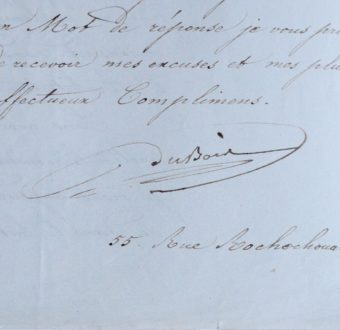 n Mot de réponse je vous pri
de recevoir mes excuses et mes plu
ffectueux Complimens.
duBois
55. Rue Rochechoua